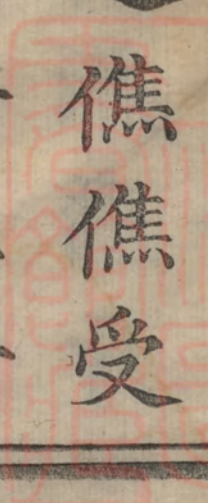 僬僬受